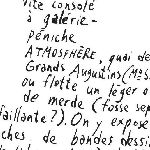 vite consolé
à galerie-
péniche
ATMOSPHÈRE, quai de
Grands Augustins (M°S
où flotte un léger o
de merde (fosse sep
faillante?). On y expose
ches de bandes dessi